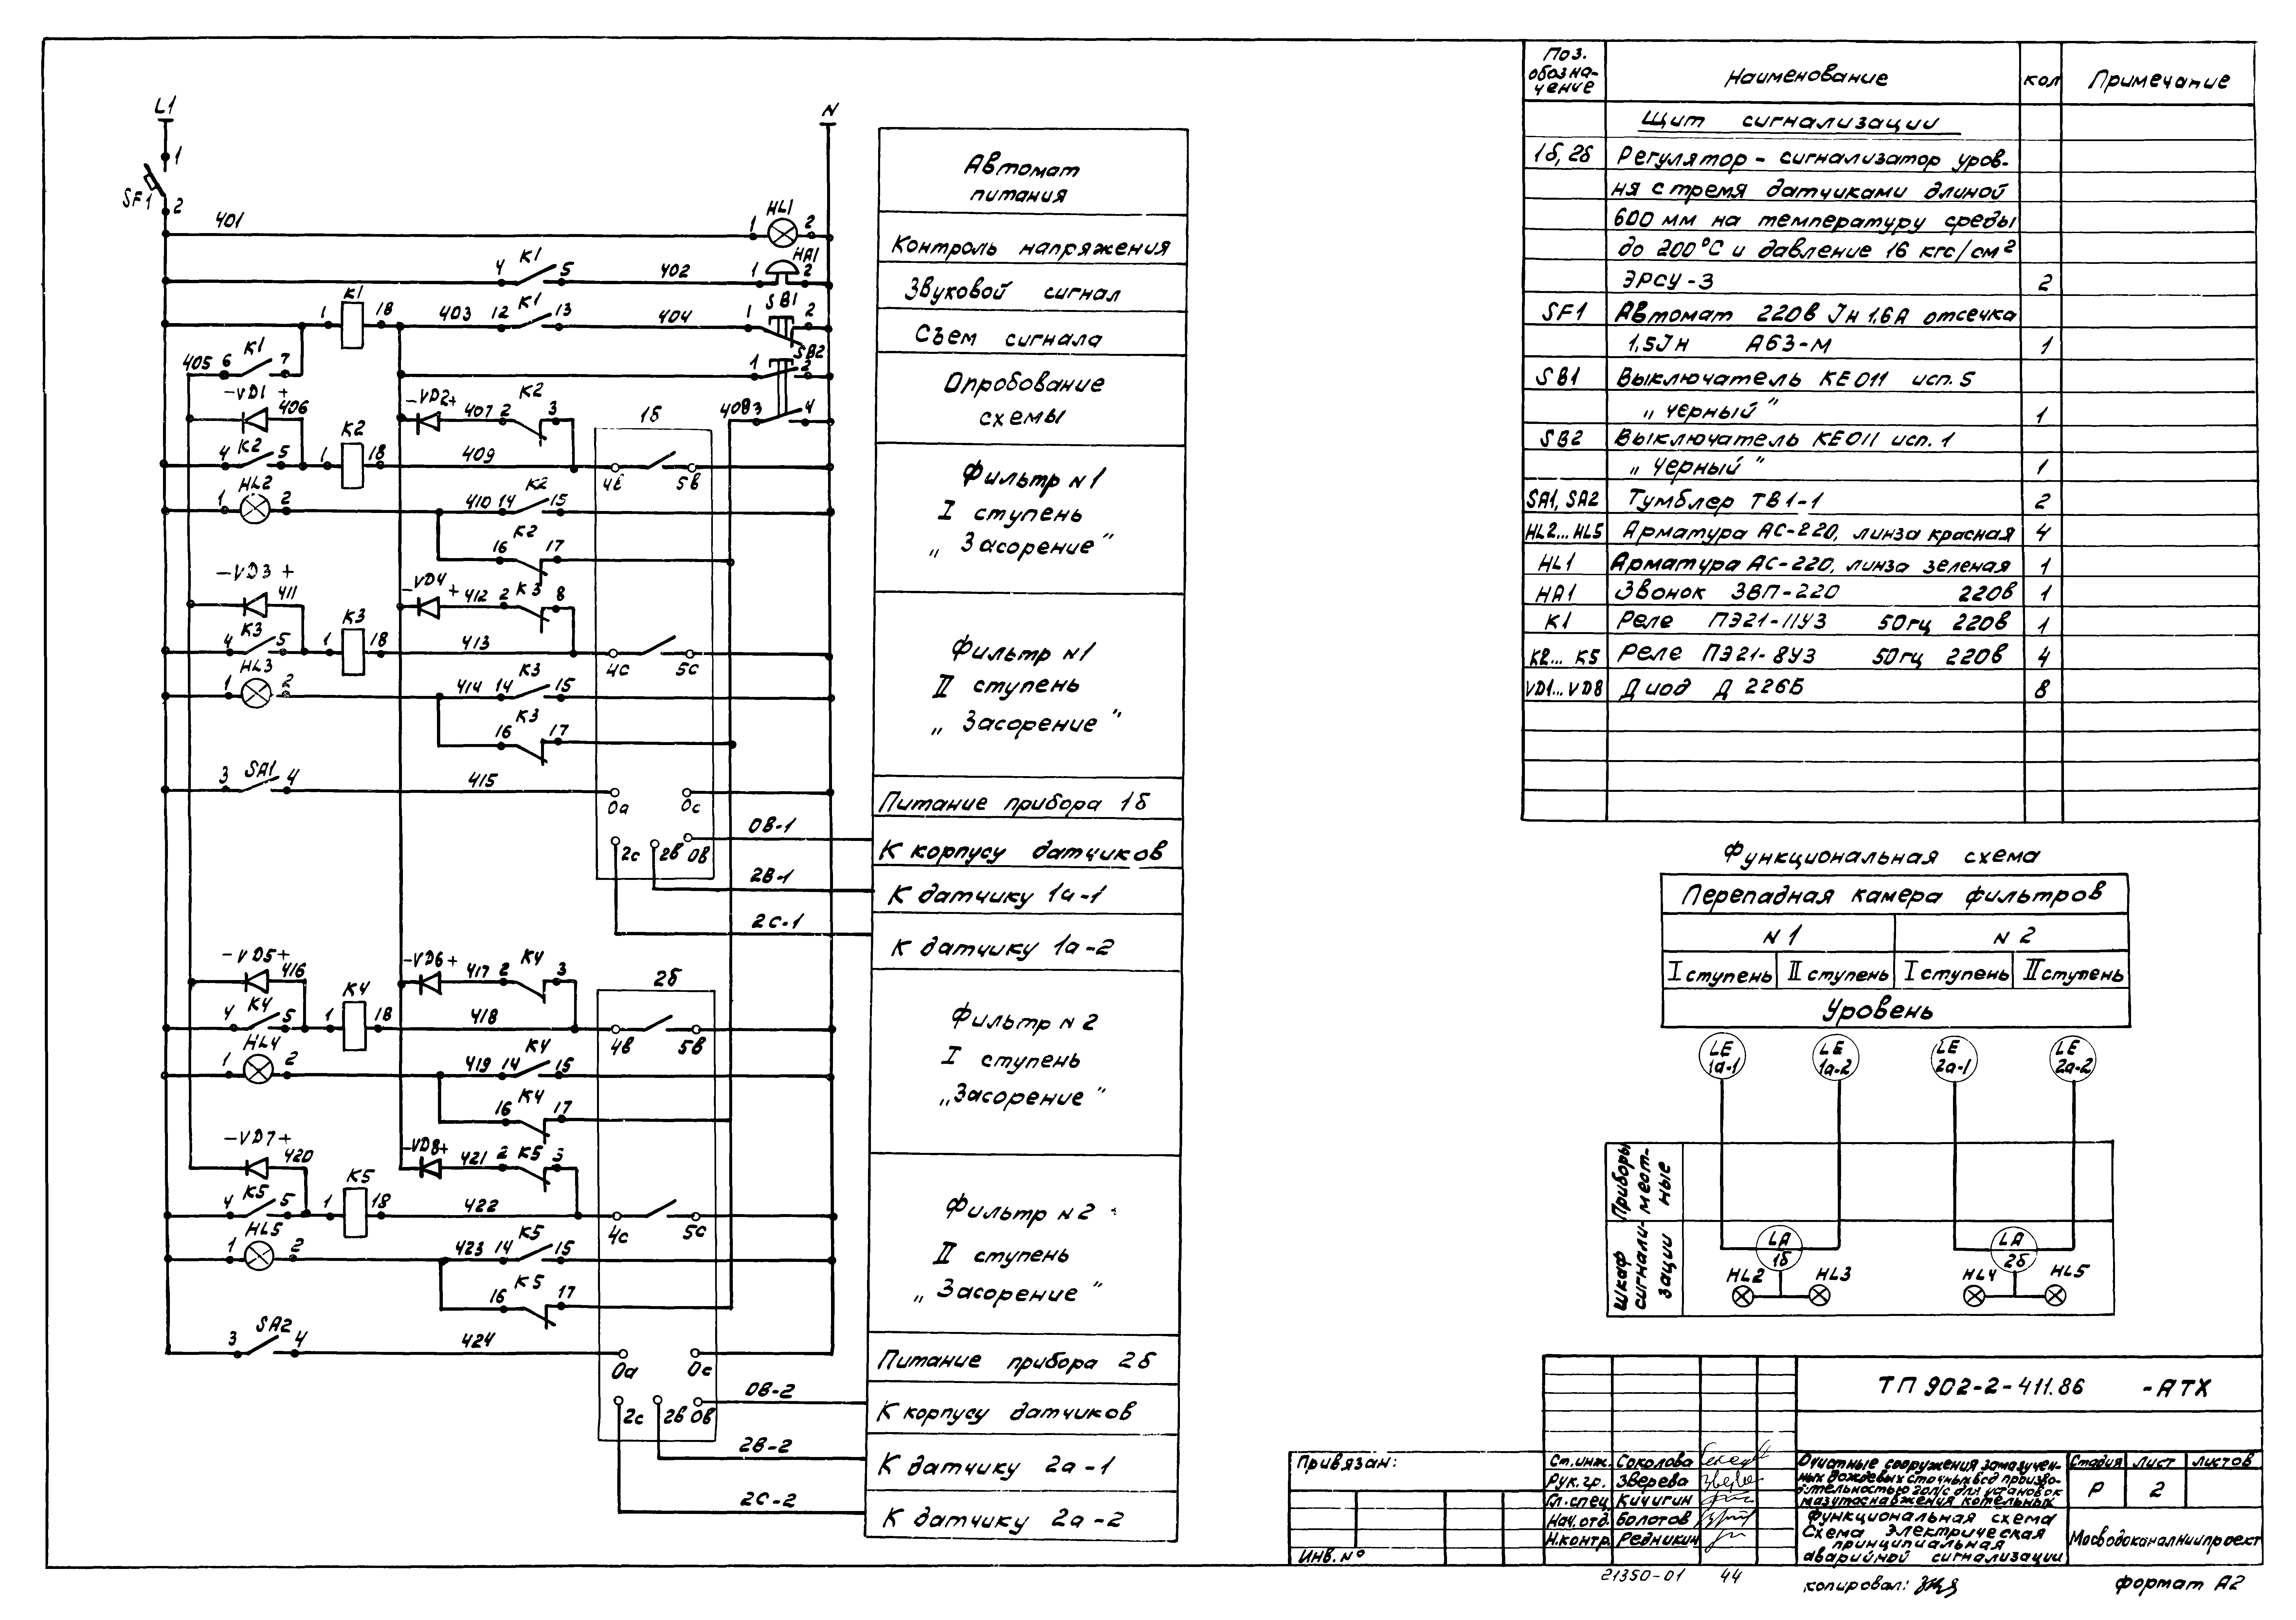 L1
N
1
SF1
2
401
1 HL1 2
4 K1 5
402
1 HA1 2
1 K1 18
403
12 K1 13
404
1 SB1 2
405 6 K1 7
1 SB2 2
-VD1+
406
-VD2+
407 2 K2 3
1б
4083 4
4 K2 5
1 K2 18
409
4в 5в
1 HL2 2
410 14 K2 15
16 K2 17
-VD3+
411
-VD4+
412 2 K3 8
4 K3 5
1 K3 18
413
4с 5с
1 HL3 2
414 14 K3 15
16 K3 17
3 SA1 4
415
0а 0с
2с 2в 0в
0В-1
2В-1
2С-1
-VD5+
416
-VD6+
417 2 K4 3
2б
4 K4 5
1 K4 18
418
4в 5в
1 HL4 2
419 14 K4 15
16 K4 17
-VD7+
420
-VD8+
421 2 K5 3
4 K5 5
1 K5 18
422
4с 5с
1 HL5 2
423 14 K5 15
16 K5 17
3 SA2 4
424
0а 0с
2с 2в 0в
0В-2
2В-2
2С-2
Автомат
питания
Контроль напряжения
Звуковой сигнал
Съем сигнала
Опробование
схемы
Фильтр N1
I ступень
„Засорение"
Фильтр N1
II ступень
„Засорение"
Питание прибора 1б
К корпусу датчиков
К датчику 1а-1
К датчику 1а-2
Фильтр N2
I ступень
„Засорение"
Фильтр N2
II ступень
„Засорение"
Питание прибора 2б
К корпусу датчиков
К датчику 2а-1
К датчику 2а-2
Поз. обозна-чение Наименование кол Примечание
Щит сигнализации
1б, 2б Регулятор - сигнализатор уров-
ня с тремя датчиками длиной
600 мм на температуру среды
до 200°С и давление 16 кгс/см²
ЭРСУ-3 2
SF1 Автомат 220в Iн 1,6А отсечка
1,5Iн А63-М 1
SB1 Выключатель КЕ011 исп. 5
„черный" 1
SB2 Выключатель КЕ011 исп. 1
„черный" 1
SA1, SA2 Тумблер ТВ1-1 2
HL2... HL5 Арматура АС-220, линза красная 4
HL1 Арматура АС-220, линза зеленая 1
HA1 Звонок ЗВП-220 220в 1
K1 Реле ПЭ21-11У3 50гц 220в 1
K2... K5 Реле ПЭ21-8У3 50гц 220в 4
VD1... VD8 Диод Д 226Б 8
Функциональная схема
Перепадная камера фильтров
N1 N2
I ступень II ступень I ступень II ступень
Уровень
LE 1а-1
LE 1а-2
LE 2а-1
LE 2а-2
Приборы местные
Шкаф сигнали-зации
LA 1б
LA 2б
HL2 HL3 HL4 HL5
ТП 902-2-411.86 -АТХ
Привязан:
Инв. №
Ст.инж. Соколова
Рук.гр. Зверева
Гл.спец Кичигин
Нач.отд. Болотов
Н.контр. Редникин
Очистные сооружения замазучен-
ных дождевых сточных вод произво-
дительностью 20л/с для установок
мазутоснабжения котельных
Стадия лист листов
Р 2
Функциональная схема
Схема электрическая
принципиальная
аварийной сигнализации
Мосводоканалниипроект
21350-01 44
копировал:
формат А2